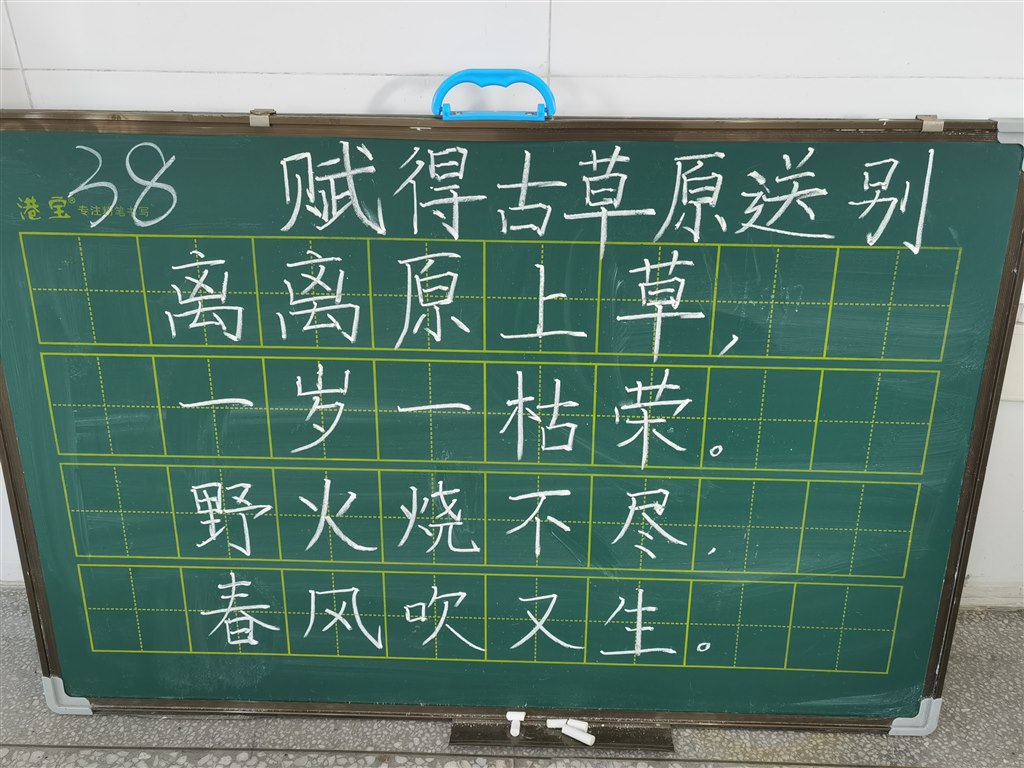 38 赋得古草原送别
港宝® 专注粉笔书写
离离原上草，
一岁一枯荣。
野火烧不尽，
春风吹又生。